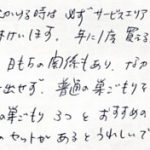 かける時は 必ず サービスエリア
年に1度 買える
日もちの関係もあり、なか
出せず。普通の巣ごもりを
の巣ごもり 3つと おすすめの
のセットがあるとうれしいで